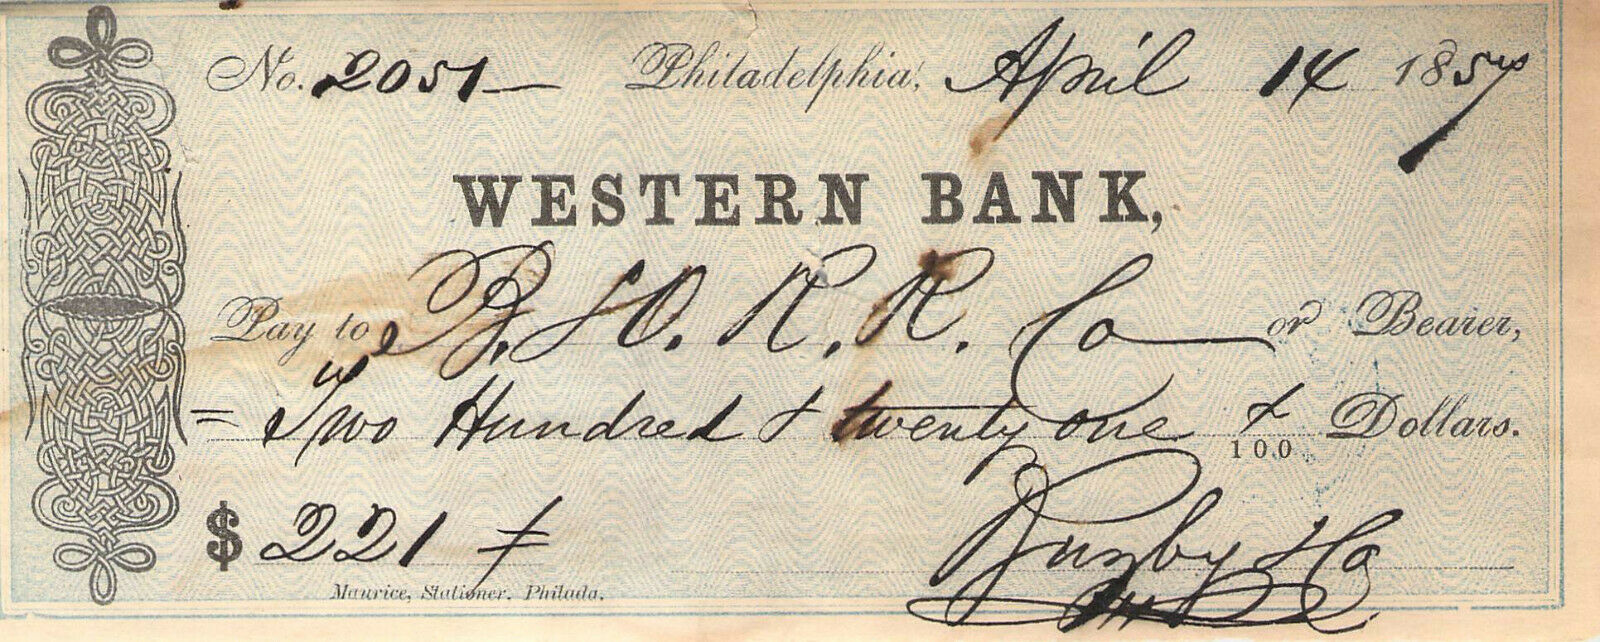 No. 2051 Philadelphia, April 14 1857
WESTERN BANK,
Pay to B. & O. R. R. Co or Bearer,
= Two Hundred & twenty one 100 Dollars.
$ 221
& Co
Maurice, Stationer. Philada.